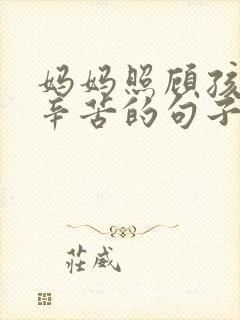 妈妈照顾孩
辛苦的句子
莊威